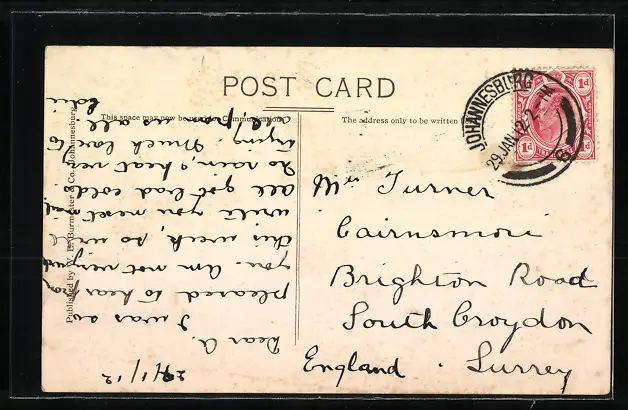 POST CARD
This space may now be used for Communication.
The address only to be written
Published by W. L. Burmester & Co., Johannesburg.
JOHANNESBURG
29 JAN 12 2 - PM
1d 1d
Mrs Turner
Cairnsmore
Brighton Road
South Croydon
England. Surrey
/1/12
Dear A.
I was so
pleased to hear from
you. Am not very
this week, so will
write you next mail.
all got bad colds.
No rain, & heat very
trying. Much love to
all